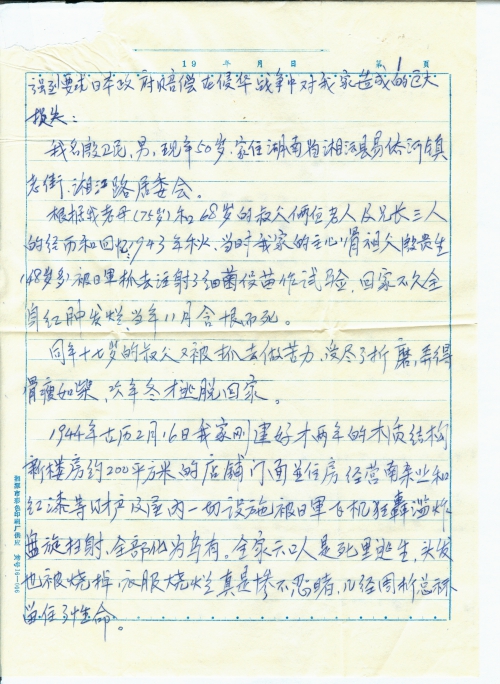 19 年 月 日 第 1 页
要求日本政府赔偿在侵华战争中对我家造成的巨大
损失：
我名殷卫民，男，现年50岁，家住湖南省湘潭县易俗河镇
老街，湘江路居委会。
根据我老母（75岁）和68岁的叔父俩位老人及兄长三人
的经历和回忆：1943年秋，当时我家的主心骨祖父殷贵生
（48岁多）被日军抓去注射了细菌役苗作试验，回家不久全
身红肿发烂，当年11月含恨而死。
同年十七岁的叔父又被抓去做苦力，受尽了折磨，弄得
骨瘦如柴，次年冬才逃脱回家。
1944年古历2月16日我家刚建好才两年的木质结构
新楼房约200平方米的店铺门面并住房经营南杂业和
红漆等财产及屋内一切设施被日军飞机狂轰滥炸
盘旋扫射，全部化为乌有。全家六口人是死里逃生，头发
也被烧掉，衣服烧烂真是惨不忍睹，几经周折总算
留住了性命。